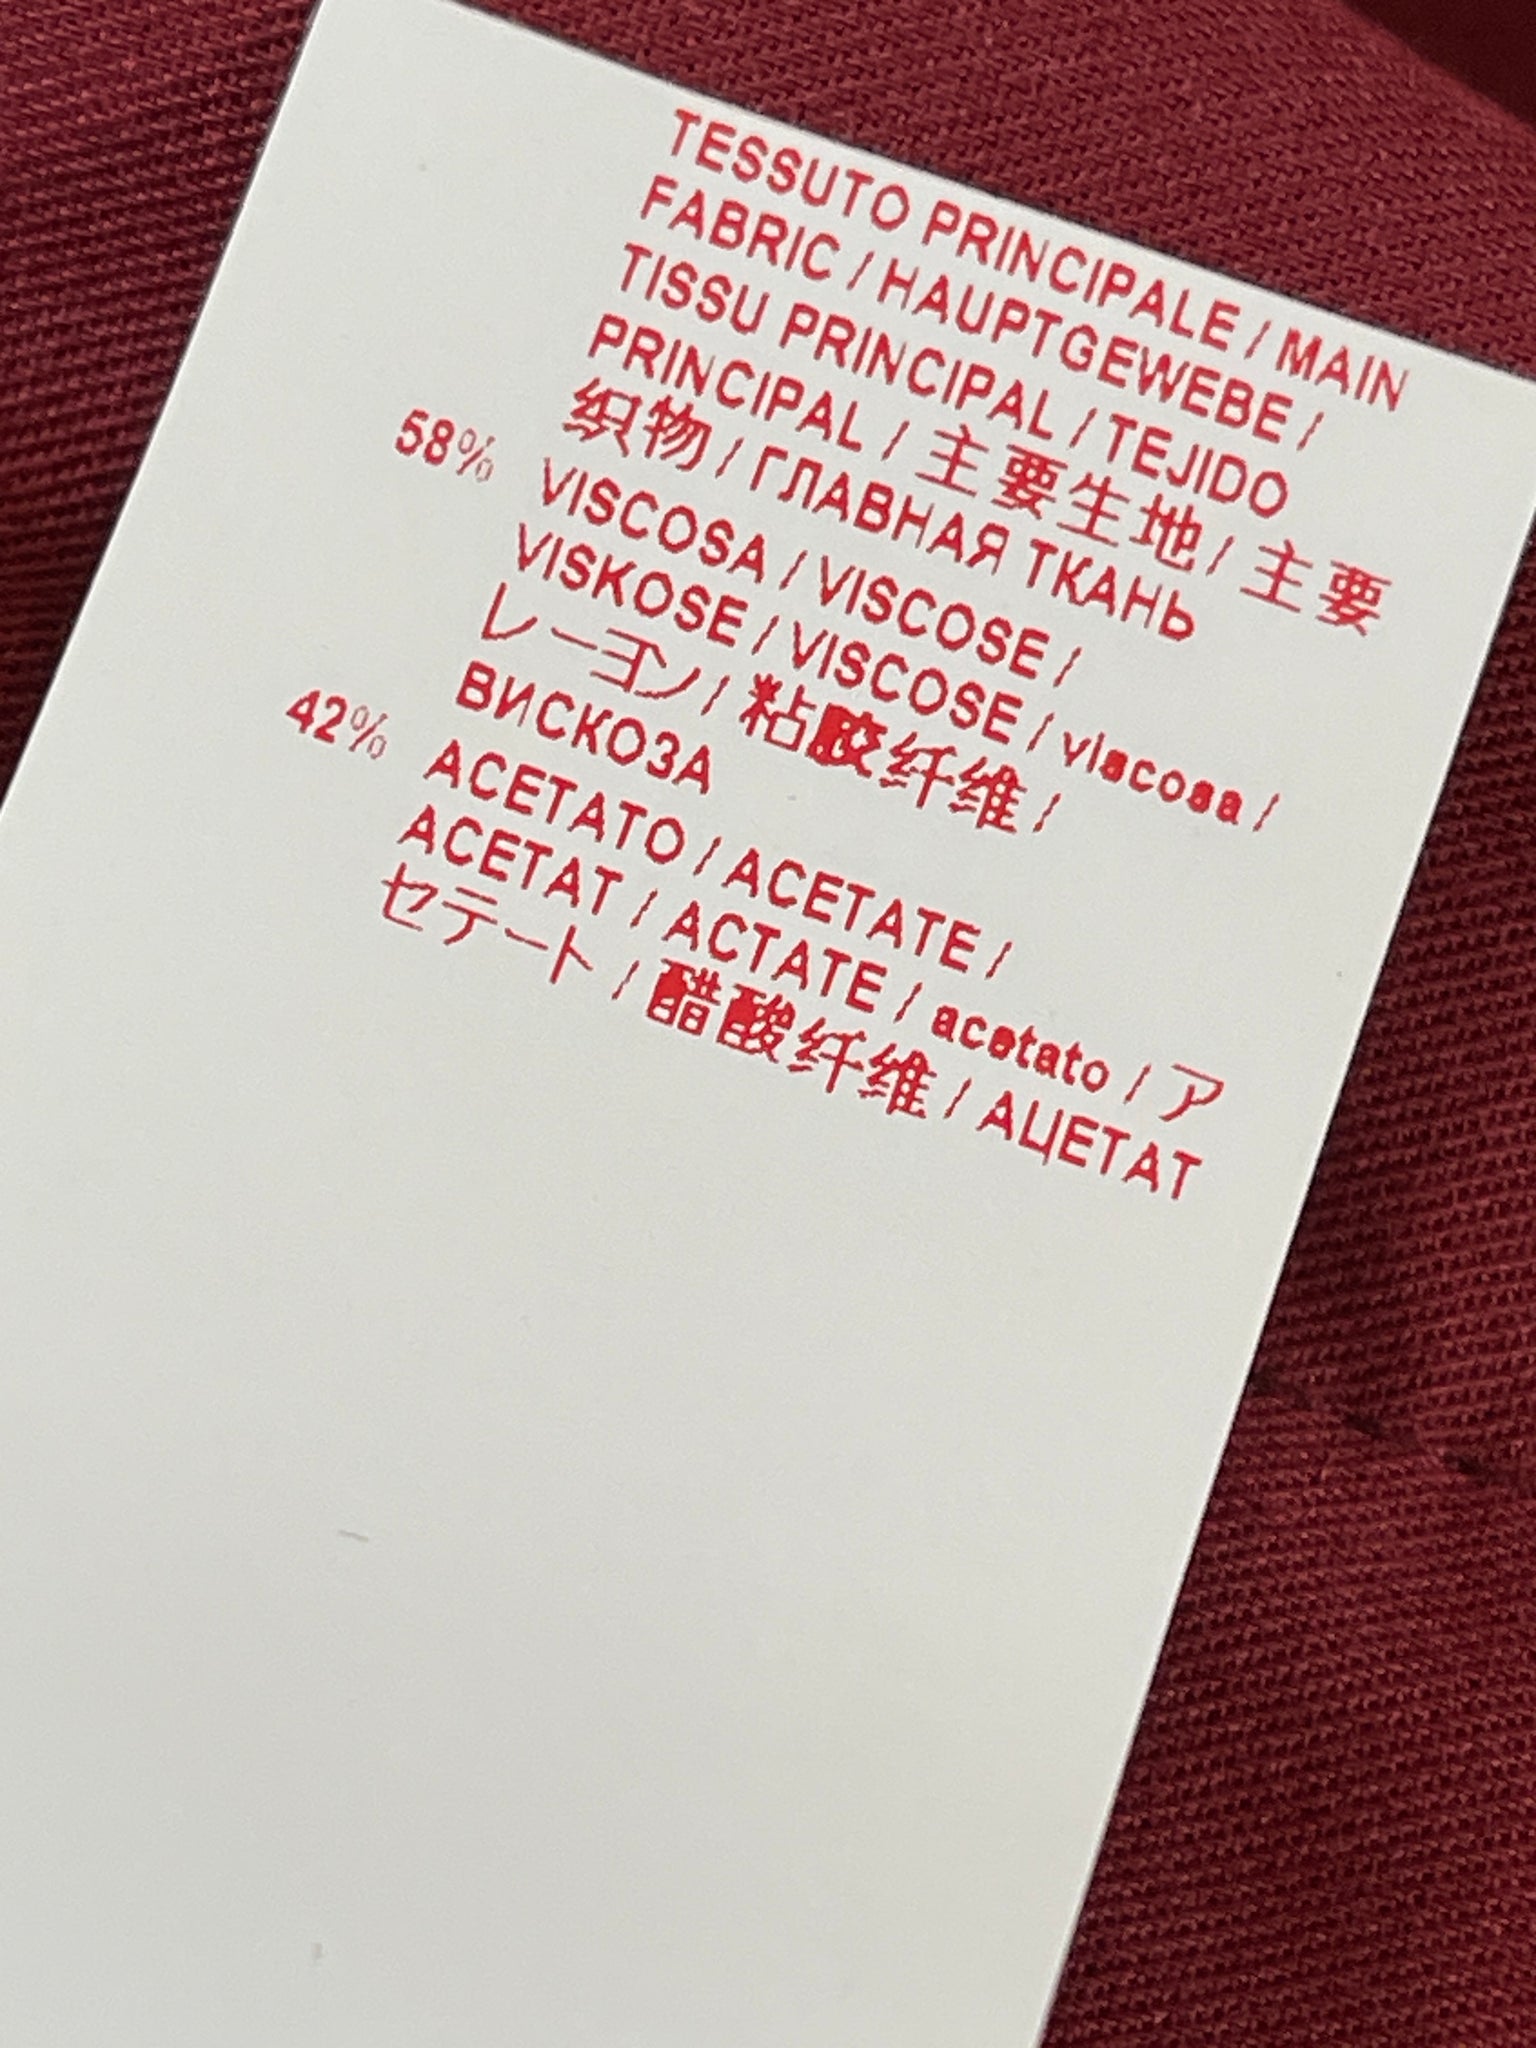 TESSUTO PRINCIPALE / MAIN
FABRIC / HAUPTGEWEBE /
TISSU PRINCIPAL / TEJIDO
PRINCIPAL / 主要生地 / 主要
织物 / ГЛАВНАЯ ТКАНЬ
58% VISCOSA / VISCOSE /
VISKOSE / VISCOSE / viscosa /
レーヨン / 粘胶纤维 /
ВИСКОЗА
42% ACETATO / ACETATE /
ACETAT / ACTATE / acetato / ア
セテート / 醋酸纤维 / АЦЕТАТ